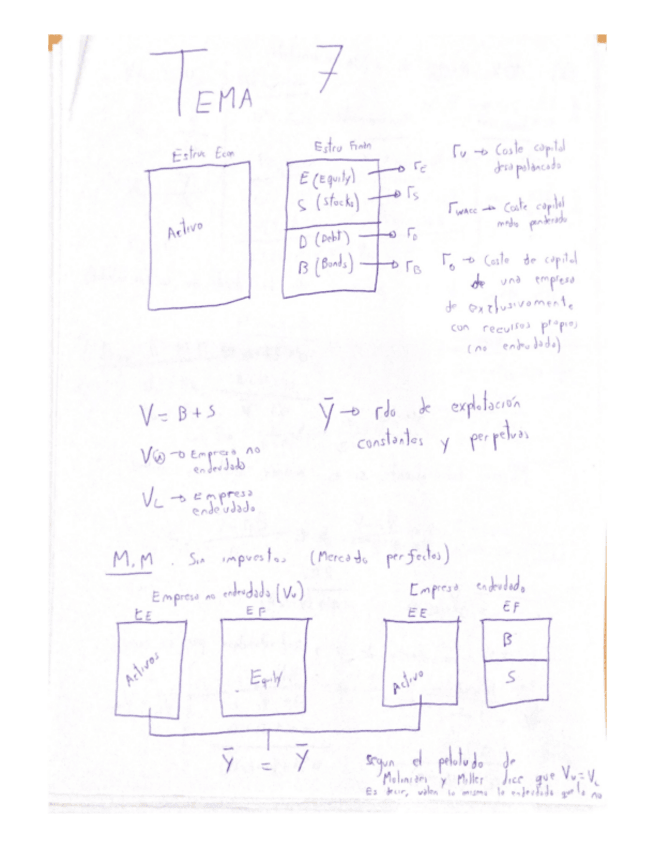 TEMA 7
Estru Econ
Estru Finan
Activo
E (Equity) → rE
S (Stocks) → rS
D (Debt) → rD
B (Bonds) → rB
rU → Coste capital
desapalancado
rWACC → Coste capital
medio ponderado
r0 → Coste de capital
de una empresa
de exclusivamente
con recursos propios
(no endeudada)
V = B + S
VU → Empresa no
endeudada
VL → Empresa
endeudada
Ȳ → rdo de explotación
constantes y perpetuas
M.M. Sin impuestos (Mercado perfectos)
Empresa no endeudada (Vu)
EE
EF
Activos
Equity
Empresa endeudada
EE
EF
Activo
B
S
Ȳ = Ȳ
Segun el pelotudo de
Modiniani y Miller dice que Vu = VL
Es decir, valen lo mismo la endeudada que la no